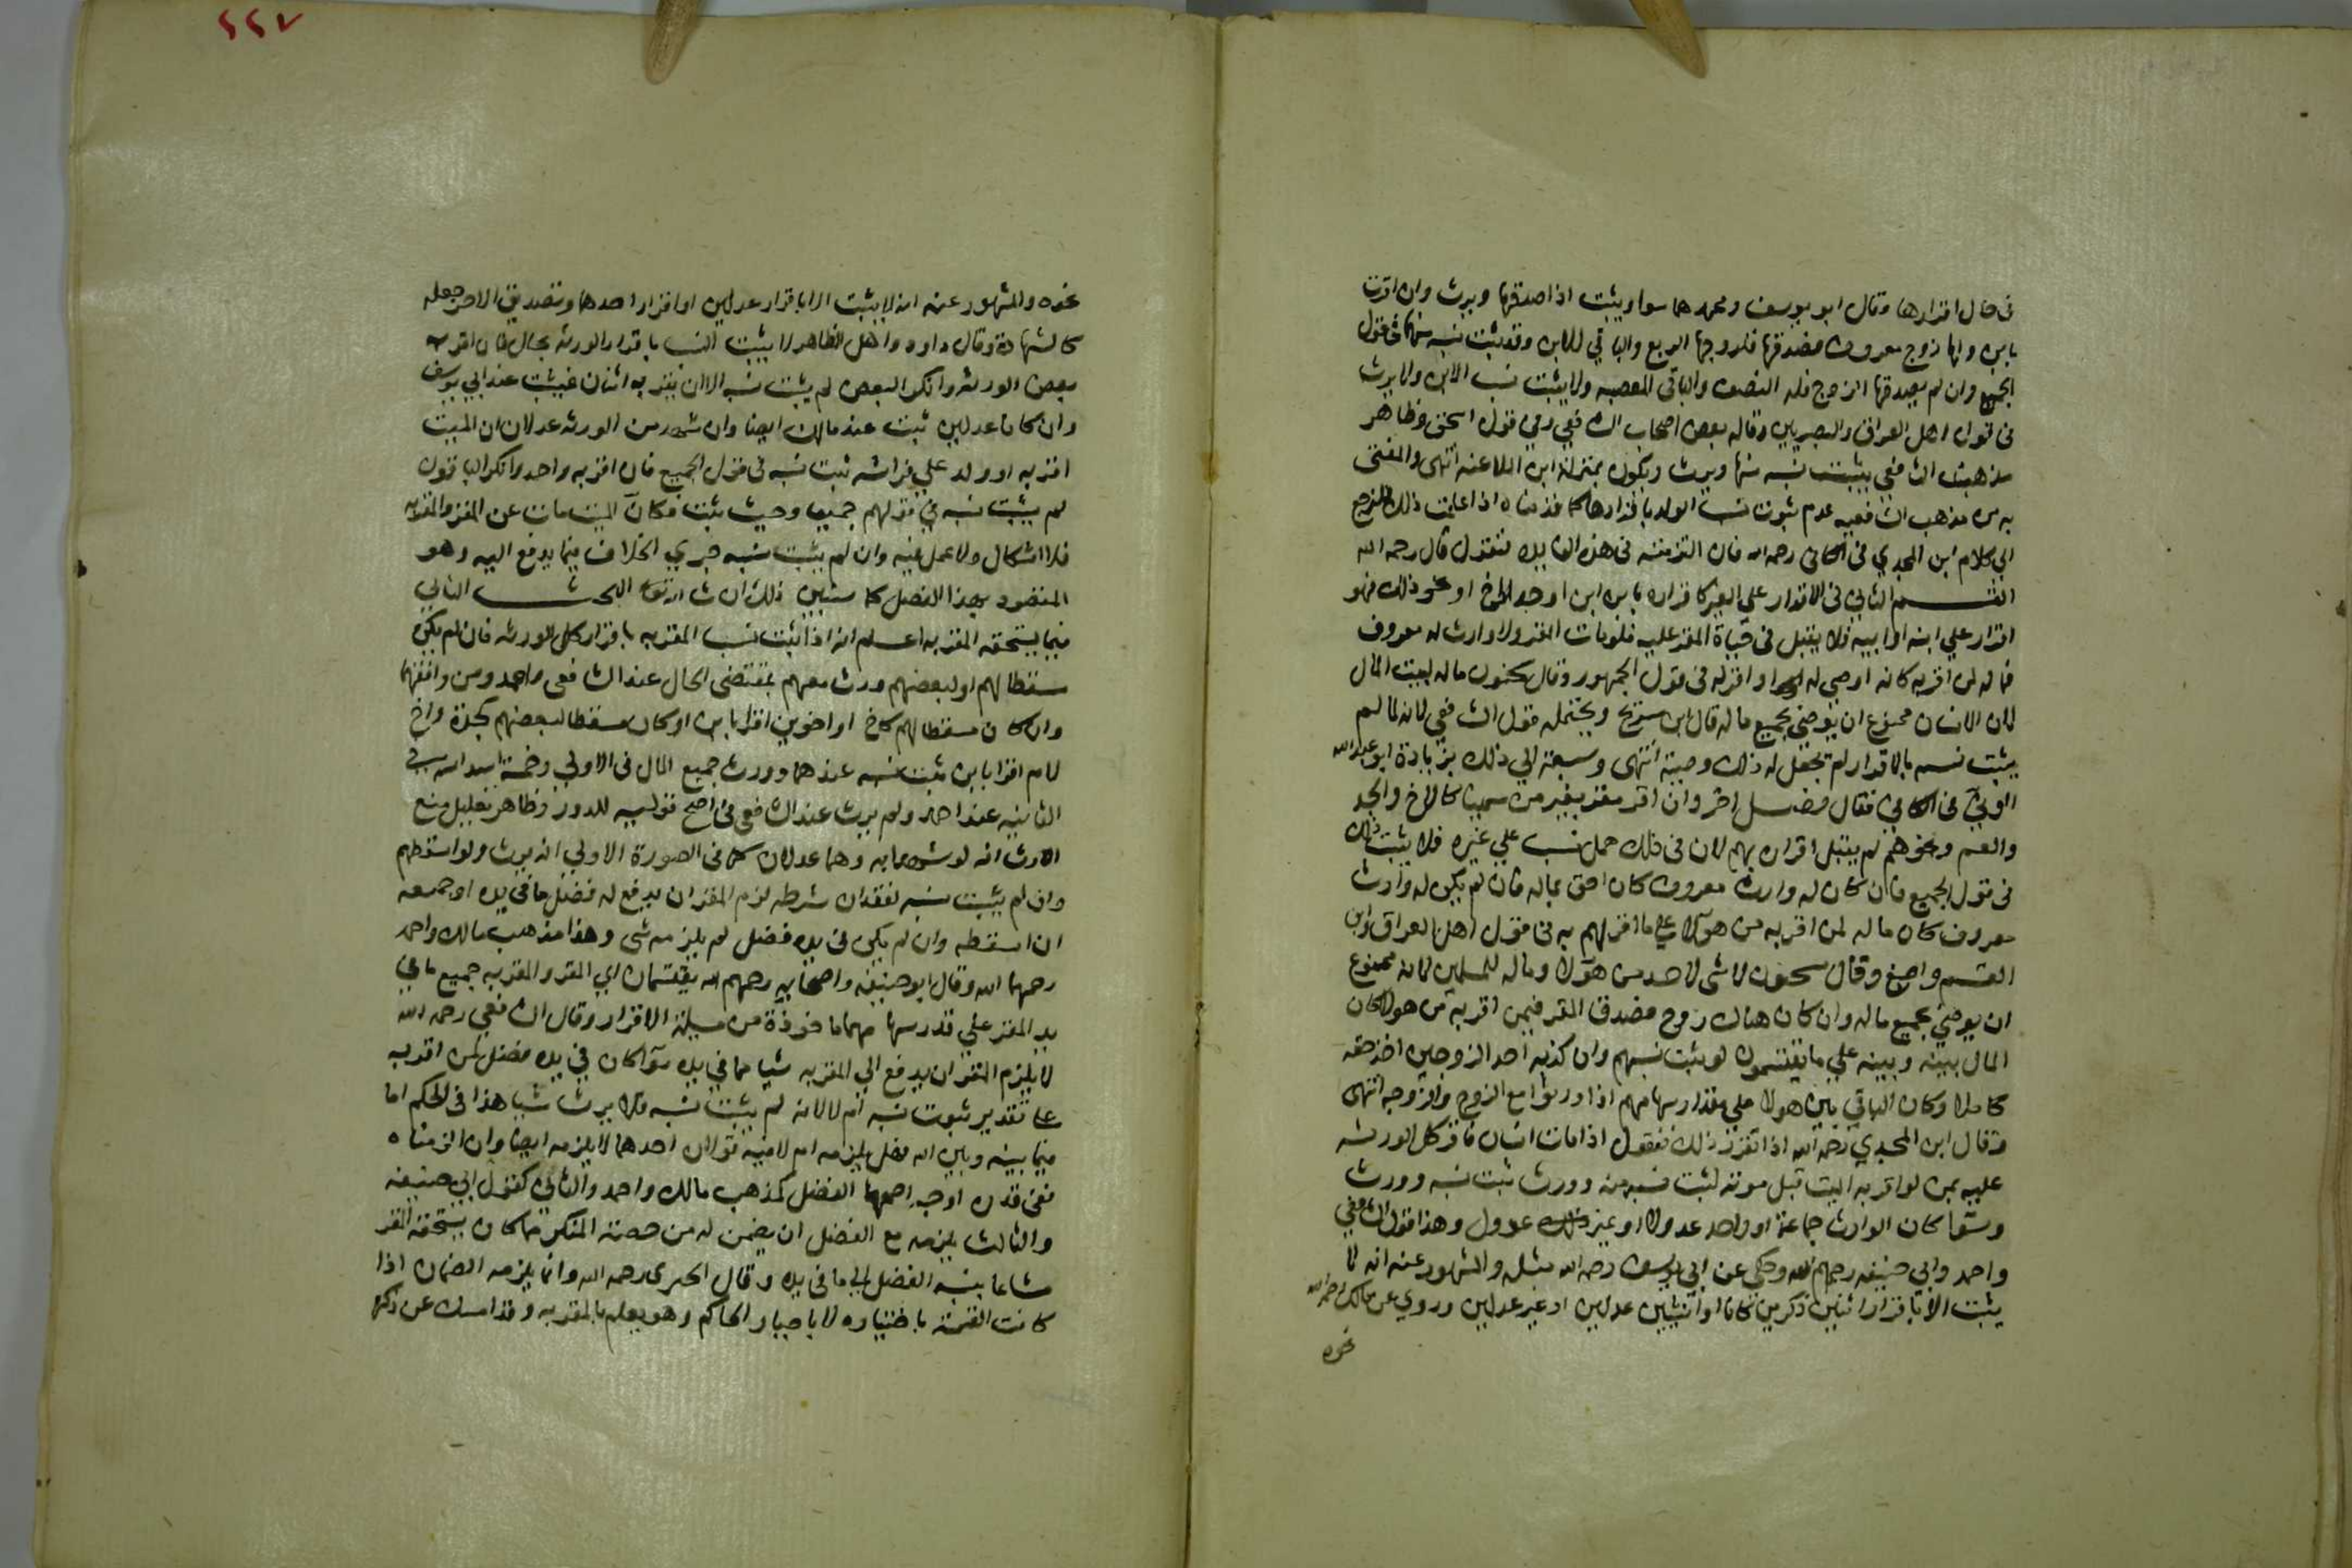 في حال اقرارها وقال ابو يوسف ومحمد هما سوا ويثبت اذا صدقها ويرث وان اقرت
بابن ولها زوج معروف فصدقها فلزوجها الربع والباقي للابن وقد ثبت نسبه منهما في قول
الجميع وان لم يصدقها الزوج فله النصف والباقي للعصبه ولا يثبت نسب الابن ولا يرث
في قول اهل العراق والبصريين وقاله بعض اصحاب الشافعي وفي قول اسحق وظاهر
مذهب الشافعي يثبت نسبه منها ويرث ويكون بمنزلة ابن الملاعنه انتهى والمفتى
به من مذهب الشافعيه عدم ثبوت نسب الولد باقرارها كما قدمناه اذا علمت ذلك فلنرجع
الي كلام ابن المجدي في الكافي رحمه الله فان التزمته في هذه الفايده فنقول قال رحمه الله
القسم الثاني في الاقرار علي الغير كاقراره بابن ابن او جد او اخ او نحو ذلك فهو
اقرار علي ابنه او ابيه فلا يقبل في حياة المقر عليه فلو مات المقر ولا وارث له معروف
فماله لمن اقر به كانه اوصي له به او اقر له في قول الجمهور وقال سحنون ماله لبيت المال
لان الانسان ممنوع ان يوصي بجميع ماله قال ابن سريج ويحتمله قول الشافعي لانه لما لم
يثبت نسبه بالاقرار لم تجعل له ذلك وصية انتهى وسبقه الي ذلك بزيادة ابو عبد الله
الوني في الكافي فقال فصل اخر وان اقر مقر بغير من سمينا كالاخ والجد
والعم ونحوهم لم يقبل اقراره بهم لان في ذلك حمل نسب علي غيره فلا يثبت ذلك
في قول الجميع فان كان له وارث معروف كان احق بماله فان لم يكن له وارث
معروف كان ماله لمن اقر به من هولا علي ما اقر لهم به في قول اهل العراق وابن
القسم واصبغ وقال سحنون لا شي لاحد من هولا وماله للمسلمين لانه ممنوع
ان يوصي بجميع ماله وان كان هناك زوج فصدق المقر فيمن اقر به من هولا كان
المال بينه وبينه علي ما يقتسمون لو ثبت نسبهم وان كذبه احد الزوجين اخذ حقه
كاملا وكان الباقي بين هولا علي مقدار سهامهم اذا ورثوا مع الزوج والزوجه انتهى
وقال ابن المجدي رحمه الله اذا تقرر ذلك فنقول اذا مات انسان فاقر كل الورثه
عليه بمن لو اقر به الميت قبل موته لثبت نسبه منه وورث ثبت نسبه وورث
وسوا كان الوارث جماعة او واحد عدولا او غير عدول وهذا قول الشافعي
واحمد وابي حنيفه رحمهم الله وحكي عن ابي يوسف رحمه الله مثله والمشهور عنه انه لا
يثبت الا باقرار اثنين ذكرين كانا او انثيين عدلين او غير عدلين وروي عن مالك رحمه الله
نحوه
٢٢٧
نحوه والمشهور عنه انه لا يثبت الا باقرار عدلين او اقرار احدهما وتصديق الاخر جعله
كالشهادة وقال داود واهل الظاهر لا يثبت النسب باقرار الورثه بحال فان اقر به
بعض الورثه وانكر البعض لم يثبت نسبه الا ان يقر به اثنان فيثبت عند ابي يوسف
وان كانا عدلين ثبت عند مالك ايضا وان شهد من الورثه عدلان ان الميت
اقر به او ولد علي فراشه ثبت نسبه في قول الجميع فان اقر به واحد وانكر الباقون
لم يثبت نسبه في قولهم جميعا وحيث ثبت فكان الميت مات عن المقر والمقر به
فلا اشكال ولا عمل فيه وان لم يثبت نسبه جري الخلاف فيما يدفع اليه وهو
المقصود بهذا الفصل كما ستبين ذلك ان شا الله تعالى البحث الثاني
فيما يستحقه المقر به اعلم انه اذا ثبت نسب المقر به باقرار كل الورثه فان لم يكن
سقطا لهم او لبعضهم ورث معهم بمقتضى الحال عند الشافعي واحمد ومن وافقهما
وان كان مسقطا لهم كاخ او اخوين اقرا بابن او كان مسقطا لبعضهم كجدة واخ
لام اقرا بابن ثبت نسبه عندهما وورث جميع المال في الاولي وخمسة اسداسه في
الثانيه عند احمد ولم يرث عند الشافعي في اصح قوليه للدور وظاهر تعليل منع
الارث انه لو شهدا به وهما عدلان كما في الصورة الاولي انه يرث ولو اسقطهم
وان لم يثبت نسبه لفقدان شرطه لزم المقر ان يدفع له فضل ما في يده او جميعه
ان اسقطه وان لم يكن في يده فضل لم يلزمه شي وهذا مذهب مالك واحمد
رحمهما الله وقال ابو حنيفه واصحابه رحمهم الله يقتسمان اي المقر والمقر به جميع ما في
يد المقر علي قدر سهامهما ماخوذة من مسيلة الاقرار وقال الشافعي رحمه الله
لا يلزم المقر ان يدفع الي المقر به شيا مما في يده سوا كان في يده فضل لمن اقر به
علي تقدير ثبوت نسبه ام لا لانه لم يثبت نسبه فلا يرث شيا هذا في الحكم اما
فيما بينه وبين الله فهل يلزمه ام لا فيه قولان احدهما لا يلزمه ايضا وان الزمناه
ففي قدره اوجه اصحها الفضل كمذهب مالك واحمد والثاني كقول ابي حنيفه
والثالث يلزمه مع الفضل ان يضمن له من حصة المنكر ما كان يستحقه المقر
مشاعا بنسبة الفضل الي ما في يده وقال رحمه الله وانما يلزمه الضمان اذا
كانت القسمة باختياره لا باجبار الحاكم وهو يعلم بالمقر به وقد امسك عن ذكره